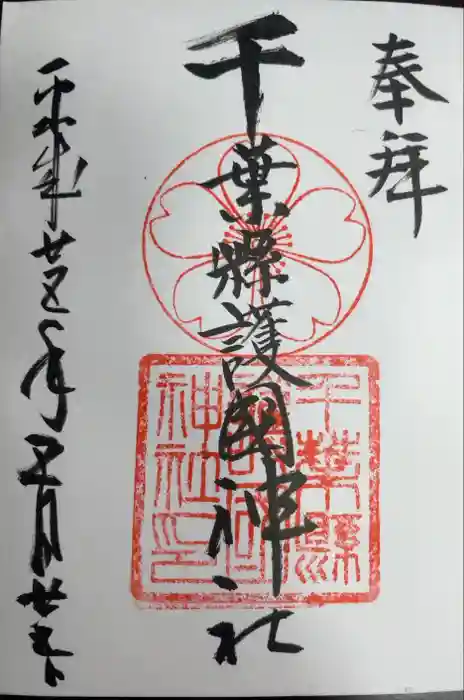 奉拝
千葉縣護國神社
平成廿五年五月廿五日
千葉縣
護國
神社印